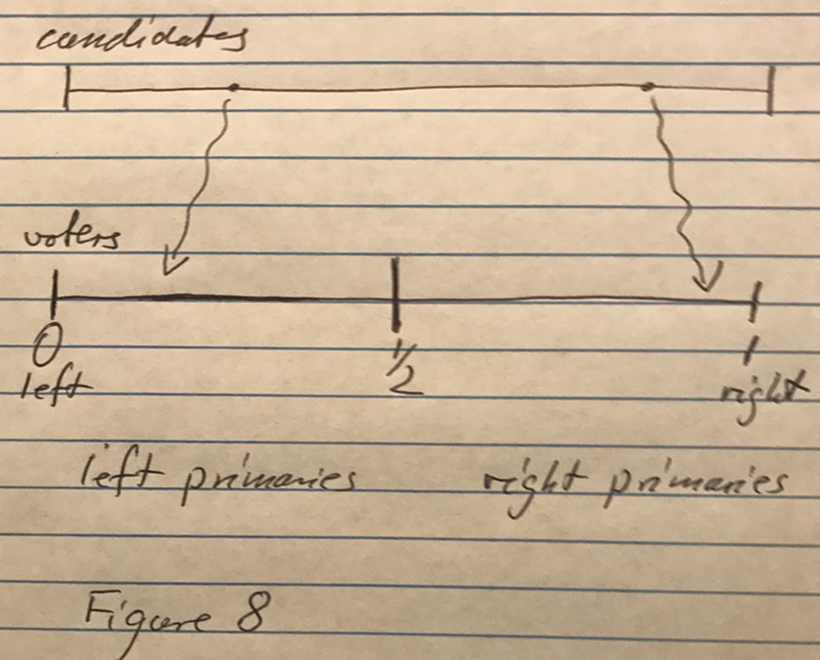 candidates
voters
0 1/2 1
left right
left primaries right primaries
Figure 8